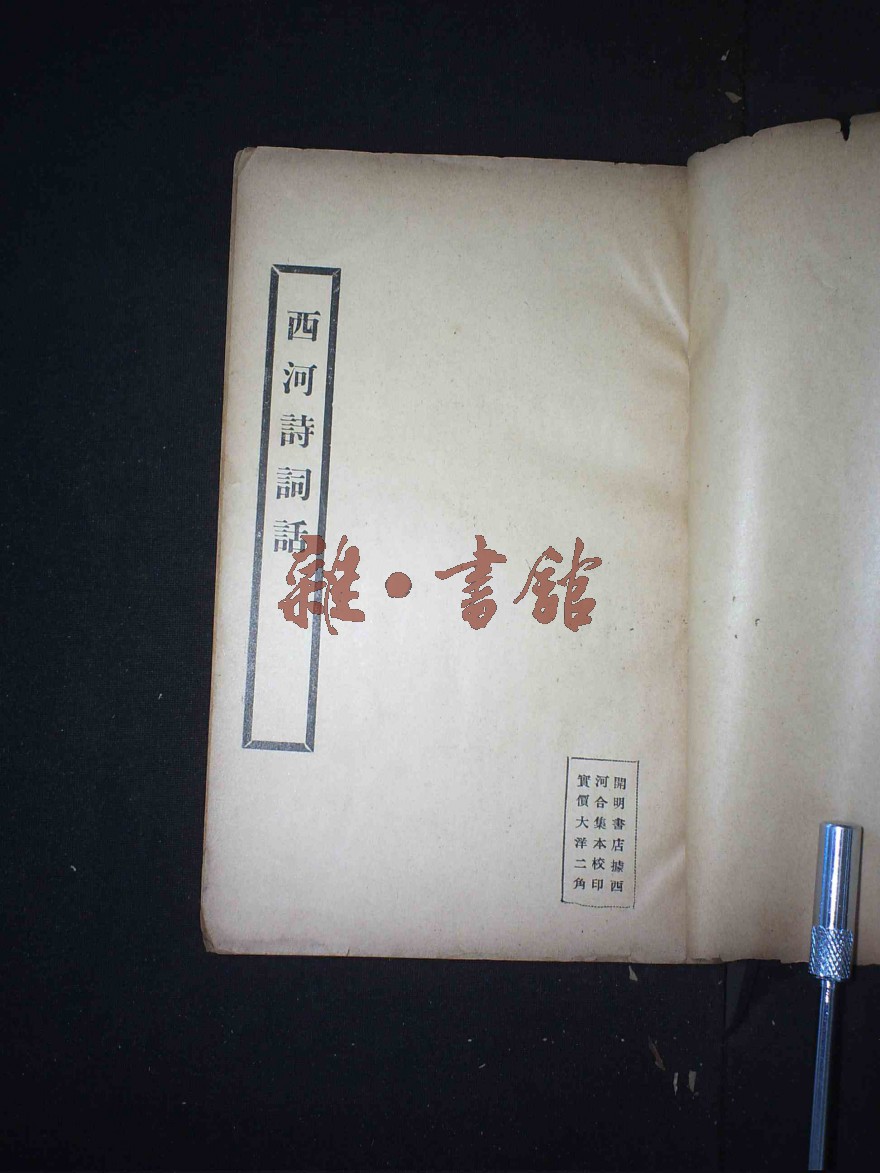 西河詩詞話
雜·書館
開明書店據西
河合集本校印
實價大洋二角